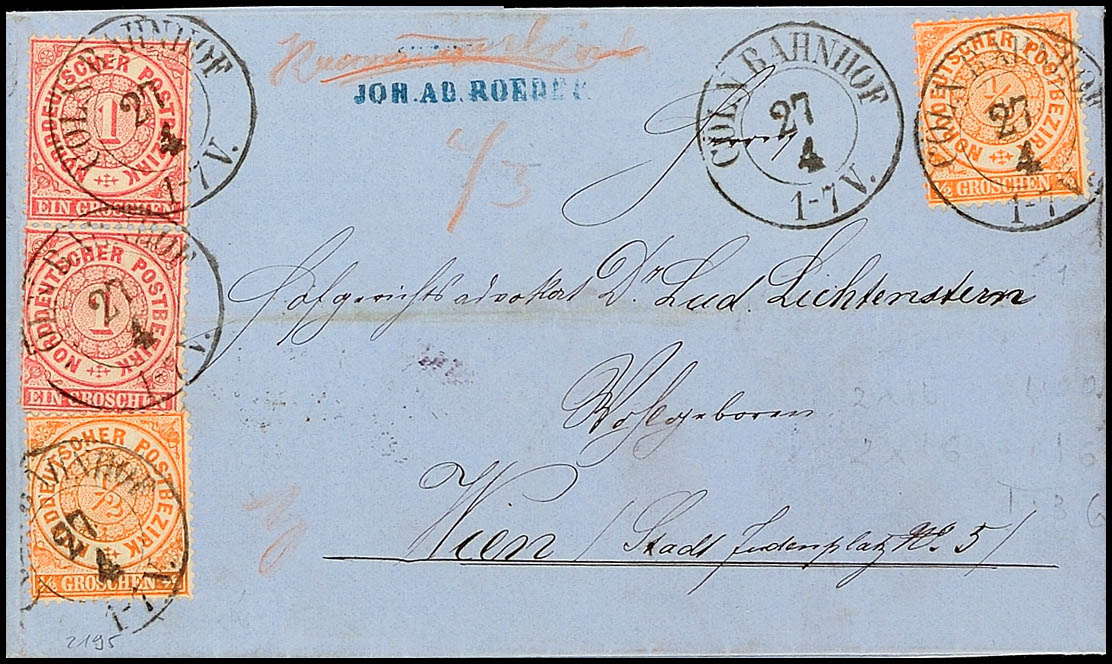 NORDDEUTSCHER POSTBEZIRK
1
EIN GROSCHEN
CÖLN BAHNHOF
27
4
1-7V.
JOH. AD. ROEDER
4/3
CÖLN BAHNHOF
27
4
1-7V.
NORDDEUTSCHER POSTBEZIRK
1/2
1/2 GROSCHEN 1/2
CÖLN BAHNHOF
27
4
1-7
NORDDEUTSCHER POSTBEZIRK
1
EIN GROSCHEN
BAHNHOF
27
4
1-7V.
Hofgerichtsadvokat Dr Lud. Lichtenstern
Wohlgeboren
2 x 16
2 x 16
NORDDEUTSCHER POSTBEZIRK
1/2
1/2 GROSCHEN 1/2
BAHNHOF
27
4
1-7V.
Wien / Stadt Judenplatz No. 5 /
2195